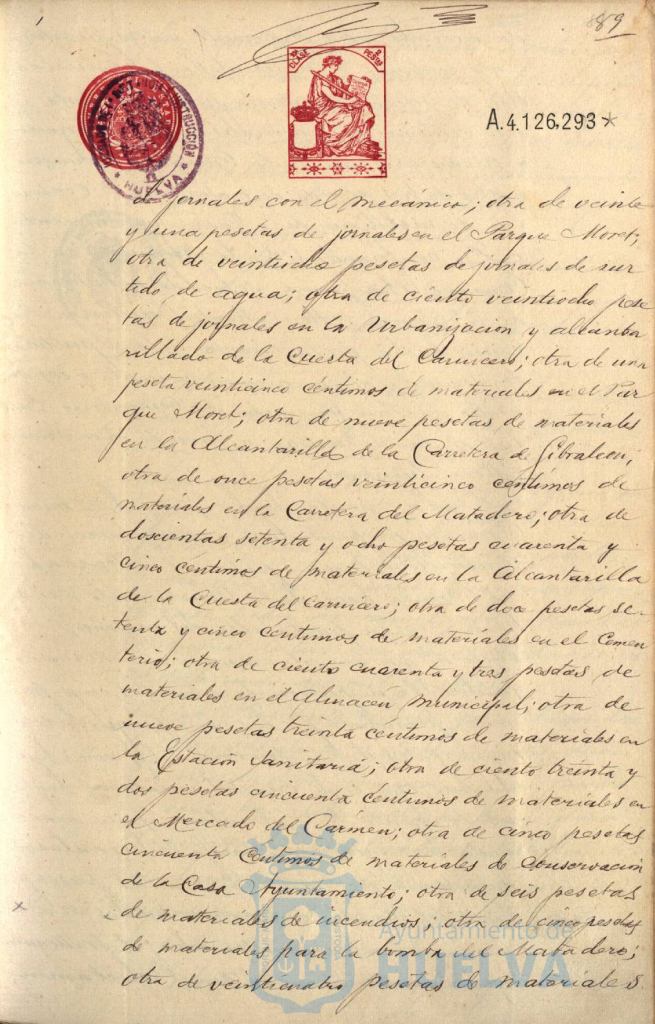 89
CLASE
PESTA
HUELVA
A.4.126,293*
de jornales con el mecánico; otra de veinte
y una pesetas de jornales en el Parque Moret;
otra de veintiocho pesetas de jornales de sur
tido de agua; otra de ciento veintiocho pese
tas de jornales en la Urbanizacion y alcanta
rillado de la Cuesta del Carnicero; otra de una
peseta veinticinco céntimos de materiales en el Par
que Moret; otra de nueve pesetas de materiales
en la Alcantarilla de la Carretera de Gibraleon;
otra de once pesetas veinticinco centimos de
materiales en la Carretera del Matadero; otra de
doscientas setenta y ocho pesetas cuarenta y
cinco centimos de materiales en la Alcantarilla
de la Cuesta del Carnicero; otra de doce pesetas se-
tenta y cinco céntimos de materiales en el Cemen
terio; otra de ciento cuarenta y tres pesetas de
materiales en el Almacén Municipal; otra de
nueve pesetas treinta centimos de materiales en
la Estación Sanitaria; otra de ciento treinta y
dos pesetas cincuenta céntimos de materiales en
el Mercado del Carmen; otra de cinco pesetas
cincuenta centimos de materiales de conservacion
de la Casa Ayuntamiento; otra de seis pesetas
de materiales de incendios; otra de cinco pesetas
de materiales para la bomba del Matadero;
otra de veinticuatro pesetas de materiales
Ayuntamiento de
HUELVA